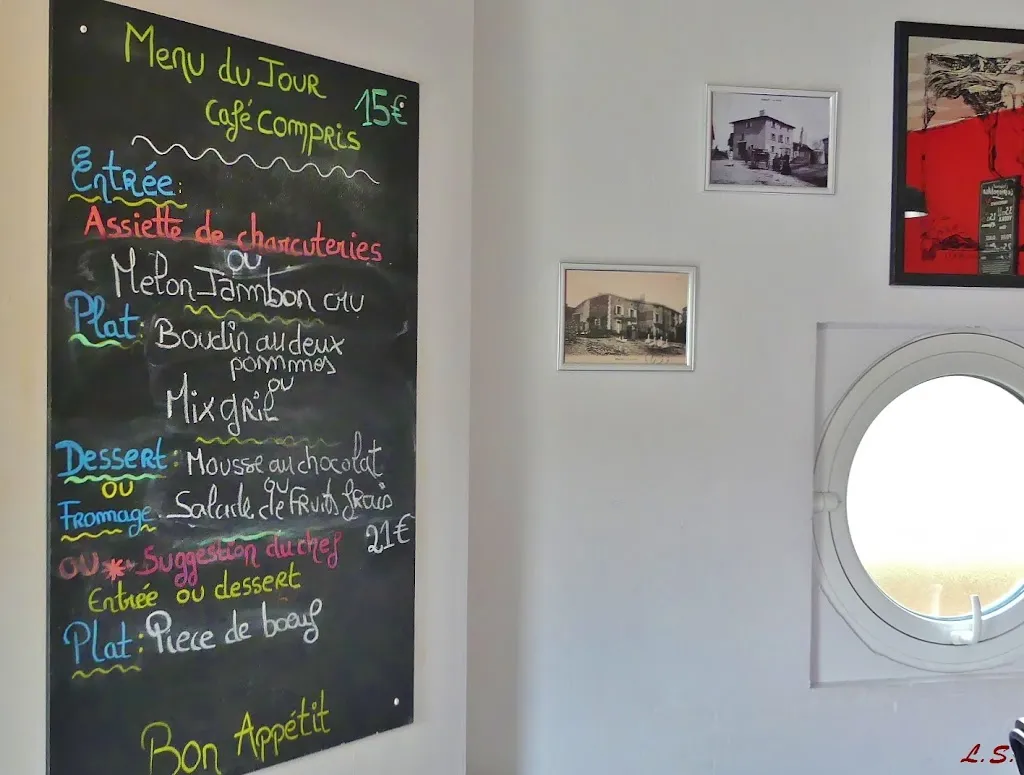 Menu du Jour
Café compris 15€
Entrée:
Assiette de charcuteries
ou
Melon Jambon cru
Plat: Boudin au deux
pommes
ou
Mix gril
Dessert: Mousse au chocolat
ou ou
Fromage. Salade de fruits frais
21€
ou * Suggestion du chef
Entrée ou dessert
Plat: Piece de boeuf
Bon Appétit
L.S.